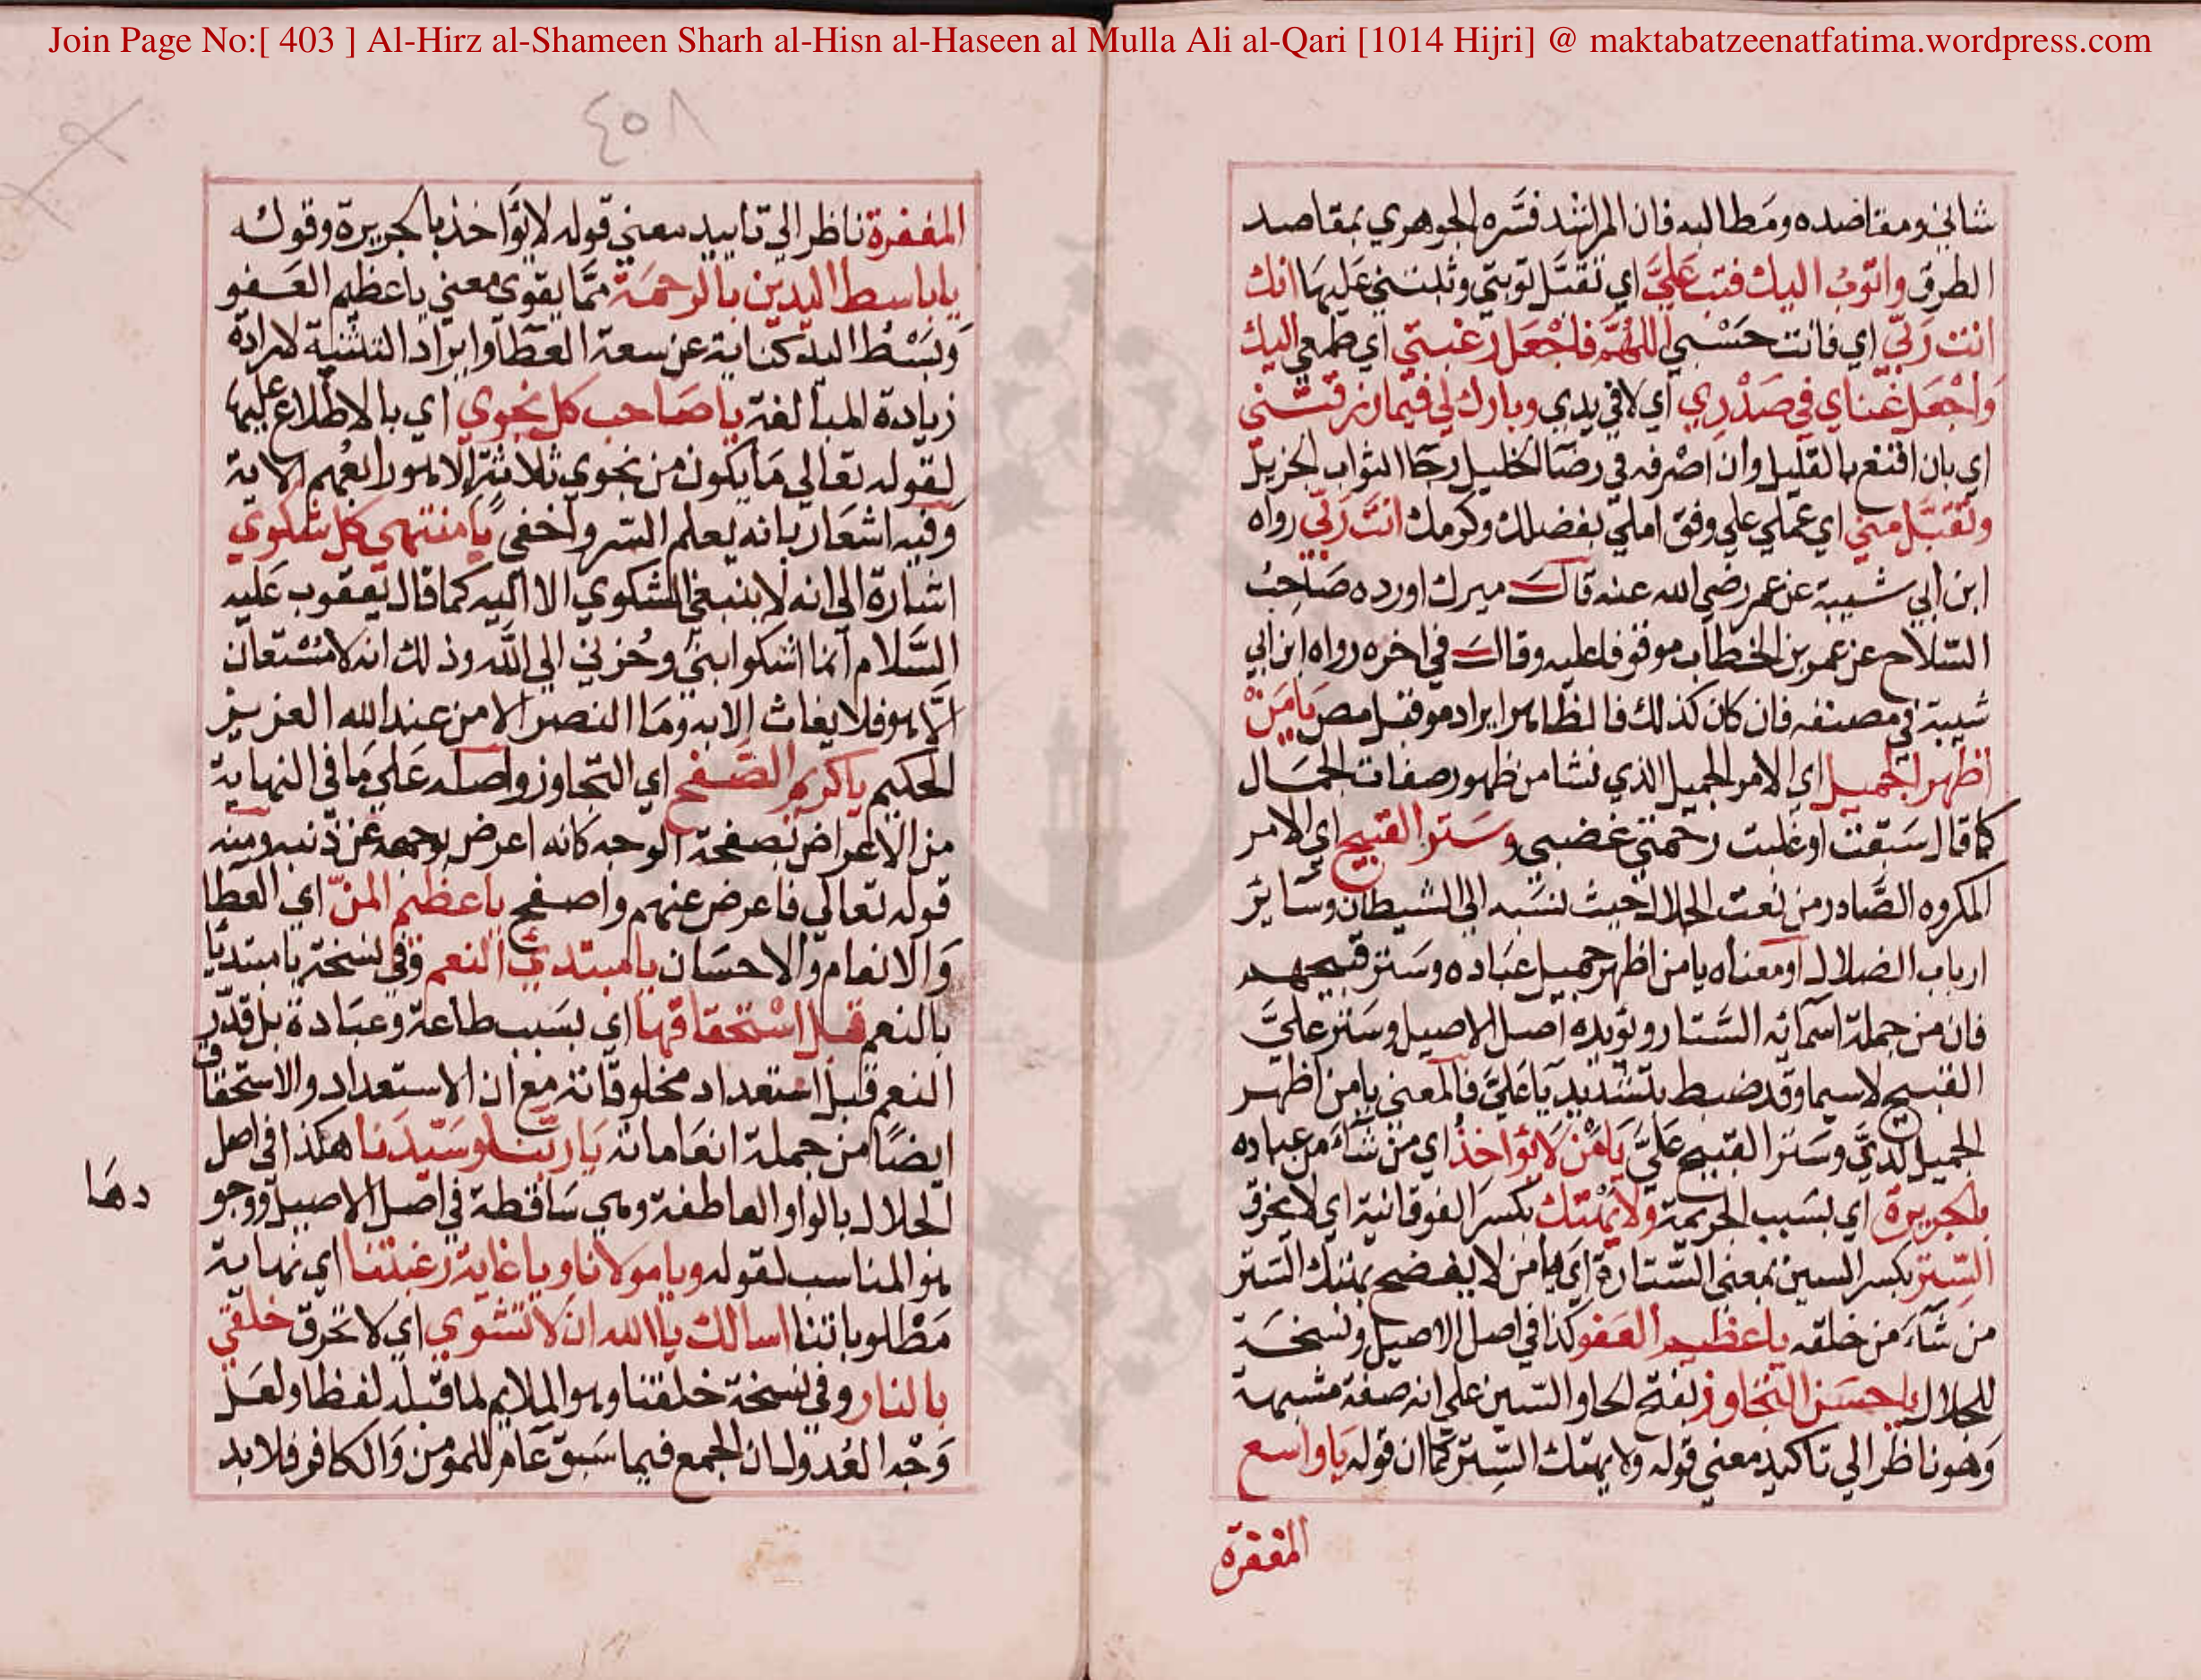 Join Page No:[ 403 ] Al-Hirz al-Shameen Sharh al-Hisn al-Haseen al Mulla Ali al-Qari [1014 Hijri] @ maktabatzeenatfatima.wordpress.com
شاني ومقاصده ومطالبه فان المراشد فسره الجوهري بمقاصد
الطرق واتوب اليك فتب علي اي تقبل توبتي وثبتني عليها انك
انت ربي اي فانت حسبي اللهم فاجعل رغبتي اي طمعي اليك
واجعل غناي في صدري اي لا في يدي وبارك لي فيما رزقتني
اي بان اقنع بالقليل وان اصرفه في رضا الخليل رجا الثواب الجزيل
وتقبل مني اي عملي علي وفق املي بفضلك وكرمك انت ربي رواه
ابن ابي شيبة عن عمر رضي الله عنه قال ميرك اورده صاحب
السلاح عن عمر بن الخطاب موقوفا عليه وقال في اخره رواه ابن ابي
شيبة في مصنفه فان كان كذلك فالظاهر ايراد موقبل مص يا من
اظهر الجميل اي الامر الجميل الذي نشا من ظهور صفات الجمال
كما قال سبقت او غلبت رحمتي غضبي وستر القبيح اي الامر
المكروه الصادر من نعت الجلال حيث نسبه الي الشيطان وسائر
ارباب الضلال او معناه يا من اظهر جميل عباده وستر قبيحهم
فان من جملة اسمائه الستار ويؤيده اصل الاصيل وستر علي
القبيح لاسيما وقد ضبط بتشديد يا علي فالمعني يا من اظهر
الجميل لدي وستر القبيح علي يا من لا يؤاخذ اي من شاء من عباده
بالجريرة اي بسبب الجريمة ولا يهتك بكسر الفوقانية اي لا يخرق
الستر بكسر السين بمعني الستارة اي يا من لا يفضح بهتك الستر
من شاء من خلقه يا عظيم العفو كذا في اصل الاصيل ونسخة
للجلال يا حسن التجاوز بفتح الحا والسين علي انه صفة مشبهة
وهو ناظر الي تاكيد معني قوله ولا يهتك الستر كما ان قوله يا واسع
المغفرة
٤٠٨
المغفرة ناظر الي تاييد معني قوله لا يؤاخذ بالجريرة وقوله
يا باسط اليدين بالرحمة مما يقوي معني يا عظيم العفو
وبسط اليد كناية عن سعة العطا وايراد التثنية لارادة
زيادة المبالغة يا صاحب كل نجوي اي بالاطلاع عليها
لقوله تعالي ما يكون من نجوي ثلاثة الا هو رابعهم الاية
وفيه اشعار بانه يعلم السر واخفي يا منتهي كل شكوي
اشارة الي انه لا ينبغي الشكوي الا اليه كما قال يعقوب عليه
السلام انما اشكوا بثي وحزني الي الله وذلك انه لا مستعان
الا هو فلا يغاث الا به وما النصر الا من عند الله العزيز
الحكيم يا كريم الصفح اي التجاوز واصله علي ما في النهاية
من الاعراض بصفحة الوجه كانه اعرض بوجهه عن ذنبه ومنه
قوله تعالي فاعرض عنهم واصفح يا عظيم المن اي العطا
والانعام والاحسان يا مبتدئ النعم وفي نسخة يا مبتديا
بالنعم قبل استحقاقها اي بسبب طاعة وعبادة بل قدر
النعم قبل استعداد مخلوقاته مع ان الاستعداد والاستحقاق
ايضا من جملة انعاماته يا ربنا وسيدنا هكذا في اصل
الجلال بالواو العاطفة وهي ساقطة في اصل الاصيل ووجو
دها
هو المناسب لقوله ويا مولانا ويا غاية رغبتنا اي نهاية
مطلوباتنا اسالك يا الله ان لا تشوي اي لا تحرق خلقي
بالنار وفي نسخة خلقتنا وهو الملايم لما قبله لفظا ولعل
وجه العدول ان الجمع فيما سبق عام للمومن والكافر فلا بد